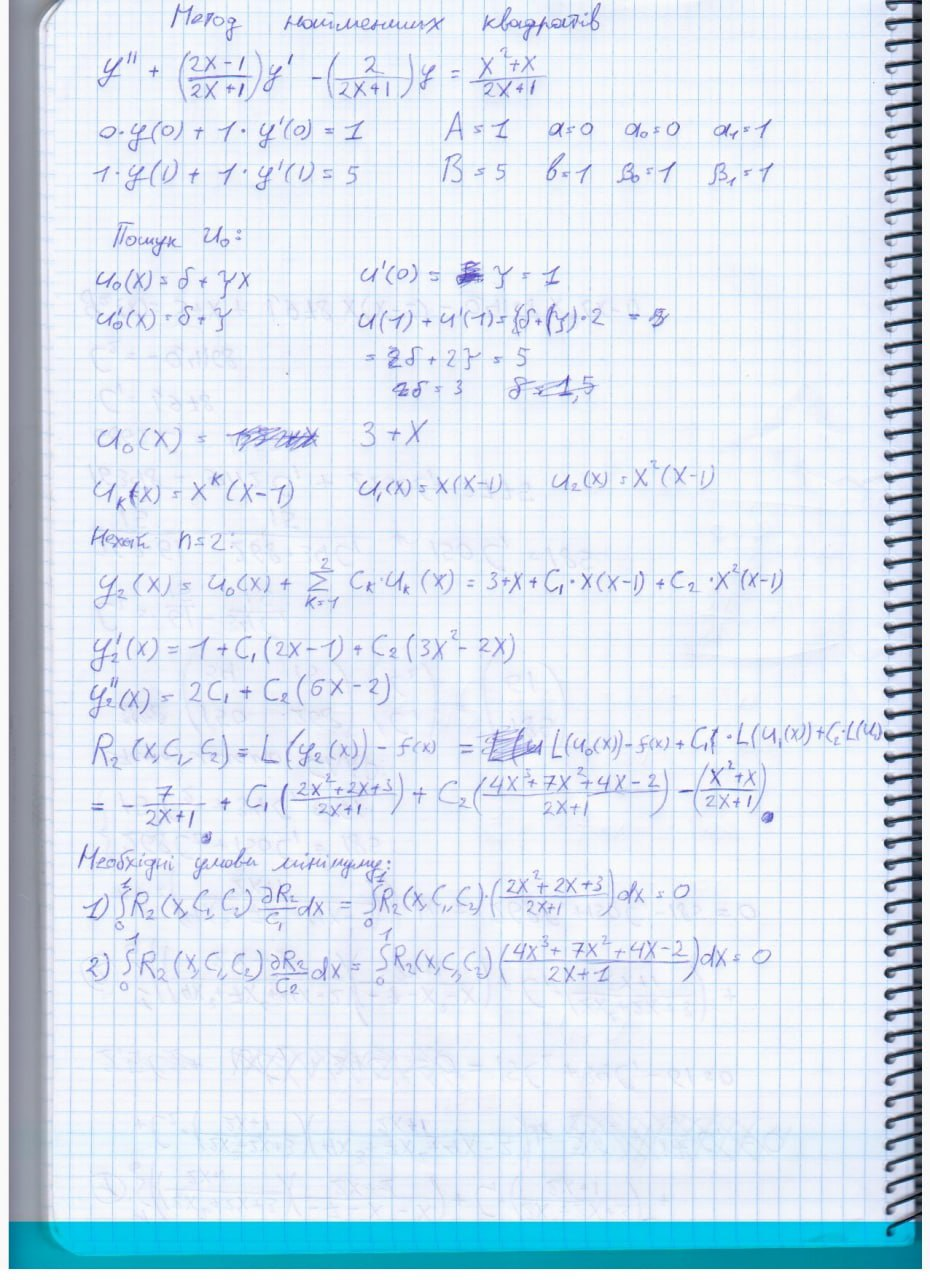 Метод найменших квадратів
y'' + ((2x-1)/(2x+1))y' - (2/(2x+1))y = (x²+x)/(2x+1)
0·y(0) + 1·y'(0) = 1 A = 1 a=0 α₀=0 α₁=1
1·y(1) + 1·y'(1) = 5 B = 5 b=1 β₀=1 β₁=1
Пошук u₀:
u₀(x) = δ + ζx u'(0) = ζ = 1
u₀'(x) = δ + ζ u(1) + u'(1) = (δ+ζ)·2 =
= 2δ + 2ζ = 5
2δ = 3
u₀(x) = 3 + x
u_k(x) = x^k(x-1) u₁(x) = x(x-1) u₂(x) = x²(x-1)
Нехай n=2:
y₂(x) = u₀(x) + Σ_{k=1}^{2} C_k·u_k(x) = 3+x+C₁·x(x-1)+C₂·x²(x-1)
y₂'(x) = 1 + C₁(2x-1) + C₂(3x²-2x)
y₂''(x) = 2C₁ + C₂(6x-2)
R₂(x,C₁,C₂) = L(y₂(x)) - f(x) = L(u₀(x)) - f(x) + C₁·L(u₁(x)) + C₂·L(u₂)
= -7/(2x+1) + C₁((2x²+2x+3)/(2x+1)) + C₂((4x³+7x²+4x-2)/(2x+1)) - ((x²+x)/(2x+1))
Необхідні умови мінімуму:
1) ∫₀¹R₂(x,C₁,C₂) ∂R₂/C₁ dx = ∫₀¹R₂(x,C₁,C₂)·((2x²+2x+3)/(2x+1))dx = 0
2) ∫₀¹R₂(x,C₁,C₂) ∂R₂/C₂ dx = ∫₀¹R₂(x,C₁,C₂)((4x³+7x²+4x-2)/(2x+1))dx = 0